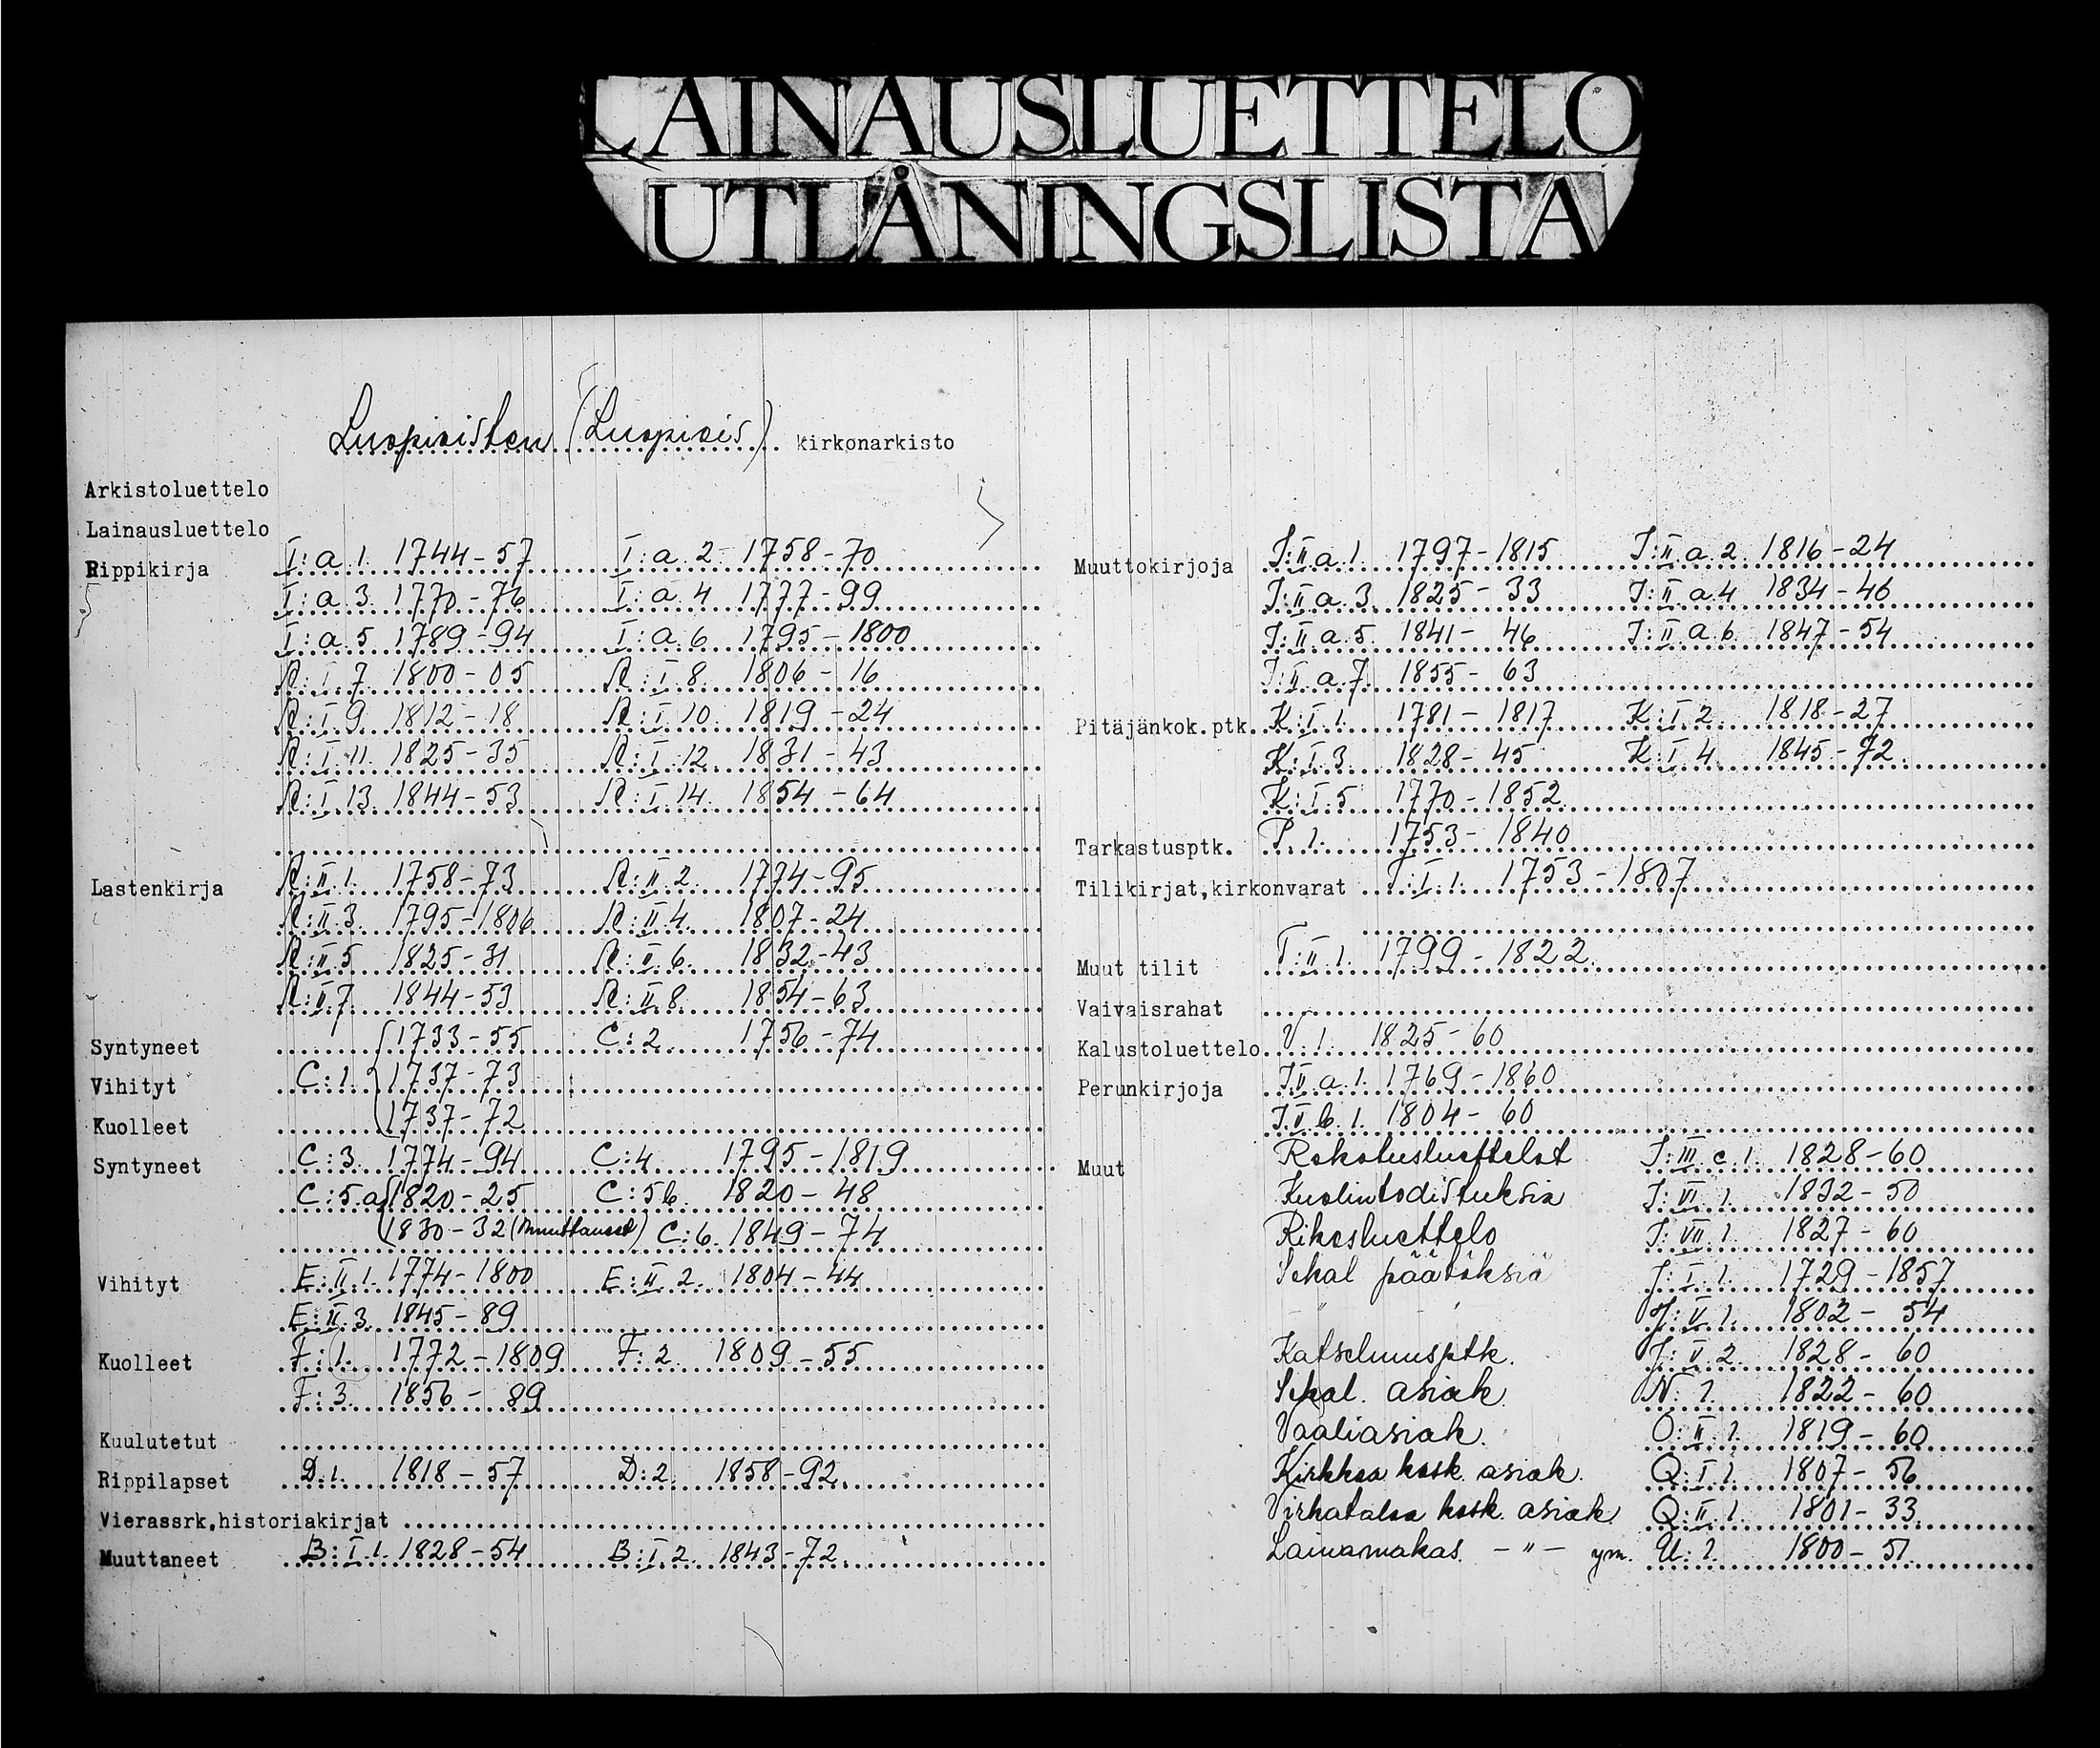 LAINAUSLUETTELO
UTLÅNINGSLISTA
Luopioisten (Luopiois) kirkonarkisto
Arkistoluettelo
Lainausluettelo
Rippikirja I:a.1. 1744-57 I:a.2 1758-70
I:a.3. 1770-76 I:a.4 1777-99
I:a.5 1789-94 I:a.6. 1795-1800
R:I.7. 1800-05 R:I.8. 1806-16
R:I.9. 1812-18 R:I.10. 1819-24
R:I.11. 1825-35 R:I.12. 1831-43
R:I.13. 1844-53 R:I.14. 1854-64
Lastenkirja R:II.1. 1758-73 R:II.2. 1774-95
R:II.3. 1795-1806 R:II.4. 1807-24
R:II.5 1825-31 R:II.6. 1832-43
R:II.7. 1844-53 R:II.8. 1854-63
Syntyneet 1733-55 C:2. 1756-74
Vihityt C:1. 1737-73
Kuolleet 1737-72
Syntyneet C:3. 1774-94 C:4 1795-1819
C:5.a 1820-25 C:5b. 1820-48
1830-32 (Muuttaneet) C:6. 1849-74
Vihityt E:II.1. 1774-1800 E:II.2. 1804-44
E:II.3. 1845-89
Kuolleet F:1. 1772-1809 F:2. 1809-55
F:3. 1856-89
Kuulutetut
Rippilapset D.1. 1818-57 D:2. 1858-92.
Vierassrk,historiakirjat
Muuttaneet B:I.1. 1828-54 B:I.2. 1843-72.
Muuttokirjoja J:II.a.1. 1797-1815 J:II.a.2. 1816-24
J:II.a.3. 1825-33 J:II.a.4 1834-46
J:II.a.5. 1841-46 J:II.a.6. 1847-54
J:II.a.7. 1855-63
Pitäjänkok.ptk. K:I.1. 1781-1817 K:I.2. 1818-27
K:I.3. 1828-45 K:I.4. 1845-72.
K:I.5 1770-1852
Tarkastusptk. P.1. 1753-1840
Tilikirjat,kirkonvarat T:I.1. 1753-1807
Muut tilit T:II.1. 1799-1822.
Vaivaisrahat
Kalustoluettelo V.1. 1825-60
Perunkirjoja J:V.a.1. 1769-1860
J:V.b.1. 1804-60
Muut Rokotusluettelot J:III.c.1. 1828-60
Kuolintodistuksia J:VI.1. 1832-50
Rikosluettelo J:VII.1. 1827-60
Sekal päätöksiä J:I.1. 1729-1857
- " - J:V.1. 1802-54
Katselmusptk. J:V.2. 1828-60
Sekal. asiak. N:1. 1822-60
Vaaliasiak. O:II.1. 1819-60
Kirkkoa kosk. asiak. Q:I.1. 1807-56
Virkataloa kosk. asiak. Q:II.1. 1801-33.
Lainamakas. -"- ym. U:1. 1800-51.